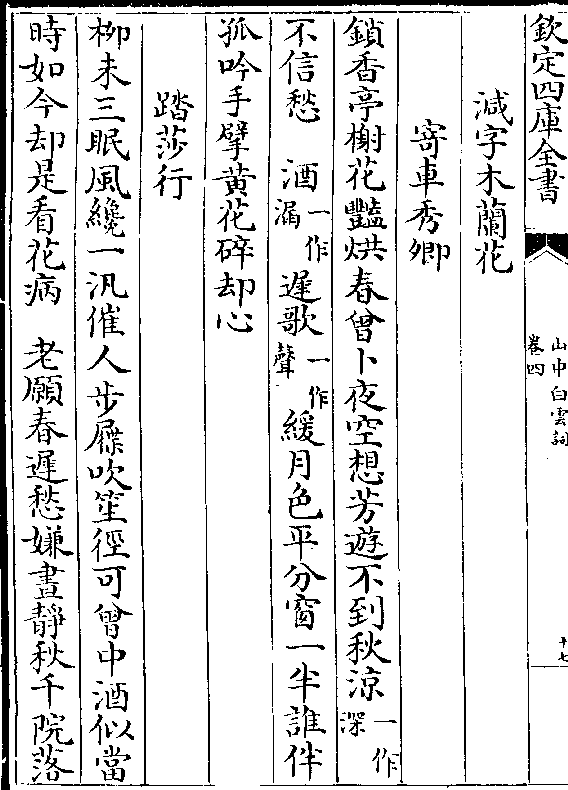 欽定四庫全書
山中白雲詞
卷四
十七
減字木蘭花
寄車秀卿
鎖香亭榭花豔烘春曾卜夜空想芳遊不到秋涼一作深
不信愁　酒一作漏遲歌一作聲緩月色平分窗一半誰伴
孤吟手擘黄花碎却心
踏莎行
栁未三眠風纔一汎催人步屧吹笙徑可曾中酒似當
時如今却是看花病　老願春遲愁嫌晝靜秋千院落